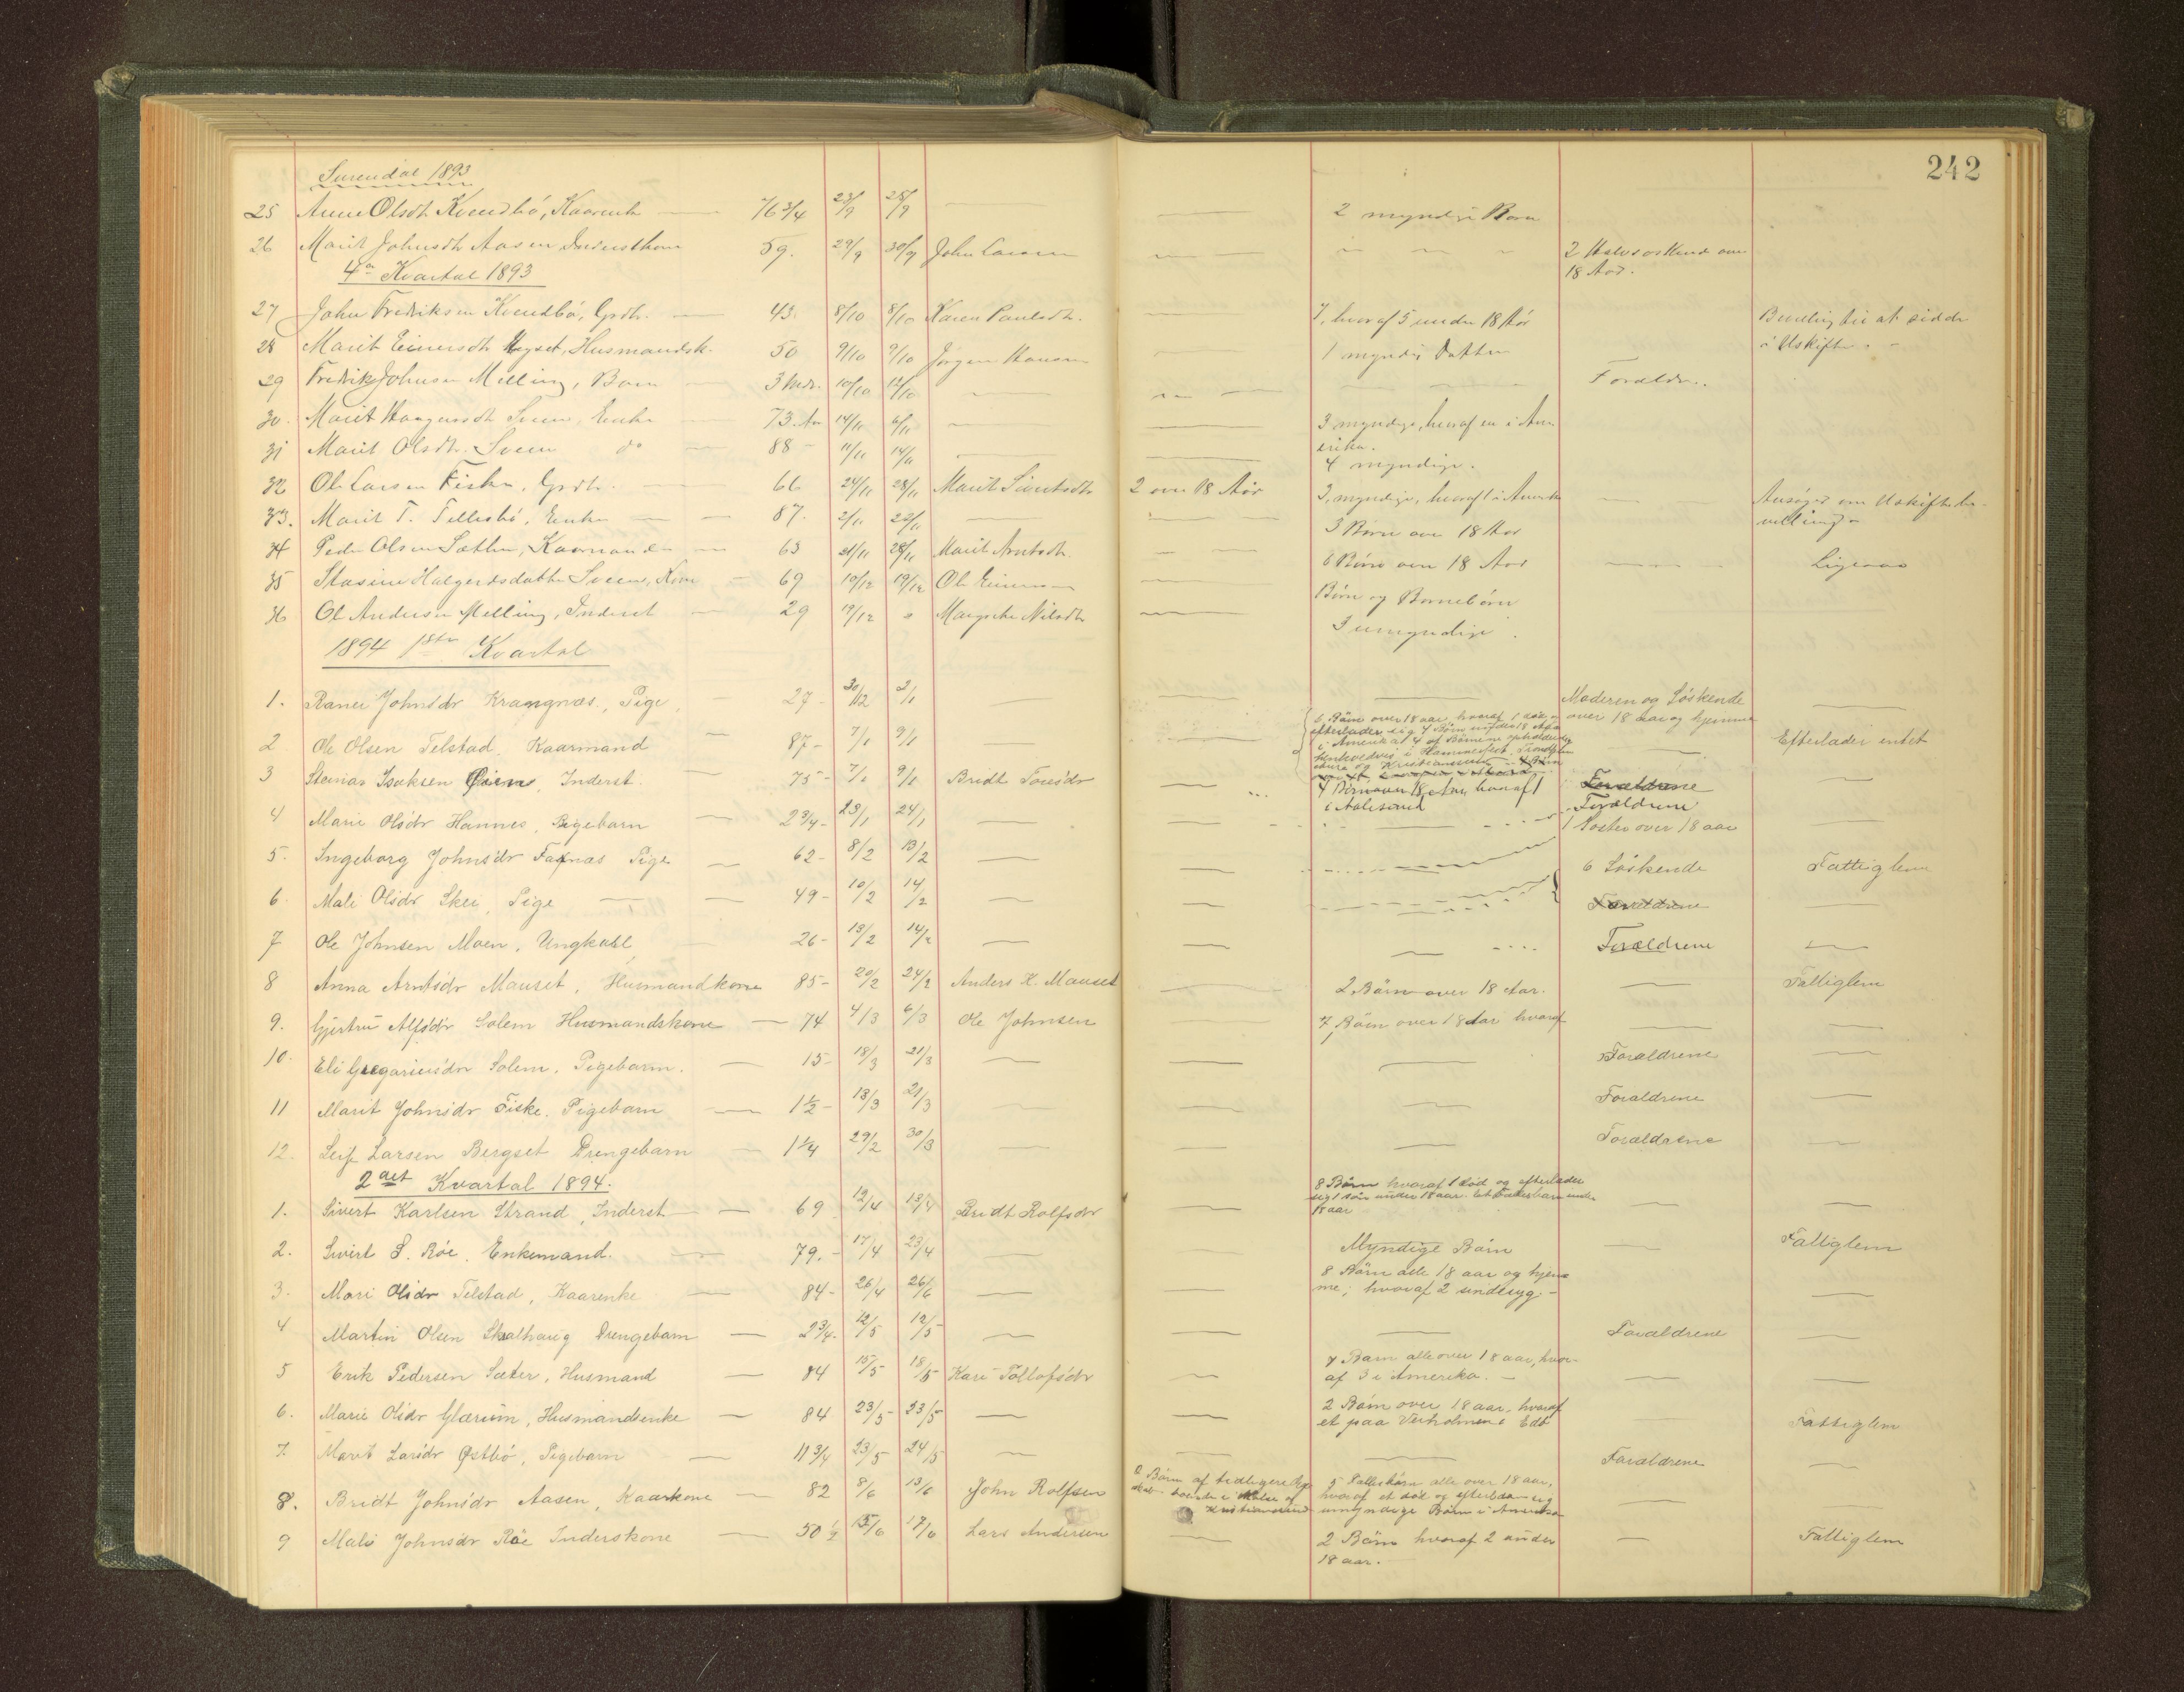 242
Surendal 1893
25 Anne Olsdt Kvendbö, Kaarenk 76 3/4 23/9 28/9 2 myndige Börn
26 Marit Johnsdt Aasen Inderstkone 59. 29/9 30/9 John Larsen 2 Halvsöskend over
18 Aar.
4de Kvartal 1893
27 John Fredriksen Kvendbö, Grdbr. 43. 8/10 8/10 Karen Paulsdtr. 7, hvoraf 5 under 18 Aar Bevilling til at sidde
i Uskifte.
28 Marit Einersdt Husmandsk. 50 9/10 9/10 Jörgen Hansen 1 myndig Datter
29 Fredrik Johnsen Melling, Barn 3 Mdr. 10/10 12/10 Foreldr..
30. Marit Enke 73. Aar 14/11 3 myndige, hvoraf en i Am
erika.
31 Marit Olsdtr. Sveen do 88 11/11 14/11 4 myndige.
32 Ole Larsen Fiske, Grdbr. 66 24/11 28/11 Marit Sivertsdtr 2 over 18 Aar 3, myndige, hvoraf 1 i Amerika Ansöger om Uskiftebe-
villing
33. Marit T. Tellesbö, Enke 87. 2/11 22/11 3 Börn over 18 Aar
34 Peder Olsen Sæther, Kaarmand 63 21/11 28/11 Marit Arntsdtr. 6 Börn over 18 Aar Ligesaa
35 Stasine Halgeirsdatter Sveen, Kone 69 10/12 19/12 Ole Einersen Börn og Börnebörn
36 Ol Andersen Melling, Inderst 29 19/12 " Margrete Nilsdtr 3 umyndige.
1894 1ste Kvartal
1. Ranei Johnsdr Krangnæs, Pige 27 - 30/12 2/1 Moderen og Söskende
over 18 Aar og hjemme
2 Ole Olsen Telstad, Kaarmand 87 - 7/1 9/1 6 Börn over 18 aar, hvoraf 1 död og
efterlader sig 7 Börn under 18 Aar
i Amerika og Kristianssund Efterlader intet
3 Stenias Isaksen Öien, Inderst. 75 - 7/1 9/1 Bridt Toresdr 4 Börn over 18 Aar, hvoraf 1
i Aalesund Forældrene
4 Marie Olsdr Hannes, Pigebarn 2 3/4 - 23/1 24/1 Forældrene
5. Ingeborg Johnsdr Faxnæs Pige 62 - 8/2 13/2 1 Söster over 18 aar
6 Söskende Fattiglem
6. Mali Olsdr Skei, Pige 49 - 10/2 14/2 Forældrene
7 Ole Johnsen Moen, Ungkarl 26 - 13/2 14/2 Forældrene
8 Anna Arntsdr Mauset, Husmandkone 85 - 20/2 24/2 Anders H. Mauset 2 Börn over 18 Aar. Fattiglem
9. Gjertru Alfsdr Solem Husmandskone 74 4/3 6/3 Ole Johnsen 7 Börn over 18 Aar hvoraf
10. Eli Gregariusdr Solem. Pigebarn. 15 - 18/3 21/3 Forældrene
11 Marit Johnsdr Fiske. Pigebarn 1 1/2 - 18/3 21/3 Forældrene
12. Leif Larsen Bergset Drengebarn 1 1/4 29/2 30/3 Forældrene
2det Kvartal 1894.
1. Sivert Karlsen Strand, Inderst 69 12/4 13/4 Bridt Rolfsdr 8 Börn hvoraf 1 död og efterlader
sig 1 sön under 18 aar. Et under
18 aar
2. Sivert S. Röe, Enkemand. 79. - 17/4 23/4 Myndige Börn Fattiglem
3. Mari Olsdr Telstad, Kaarenke 84 - 26/4 26/6 8 Börn alle 18 aar og hjem=
me, hvoraf 2 sindssyg. -
4 Martin Olsen Skalhaug Drengebarn 2 3/4 - 12/5 12/5 Forældrene
5 Erik Pedersen Sæter, Husmand 84 15/5 18/5 Kari Tollofsdr 7 Børn alle over 18 aar, hvor-
af 3 i Amerika. -
6. Marie Olsdr Glærum, Husmandsenke 84 23/5 23/5 2 Börn over 18 aar, hvoraf
et paa i Edö Fattiglem
7. Marit Larsdr Østbö, Pigebarn 11 3/4 23/5 24/5 Forældrene
8. Bridt Johnsdr Aasen, Kaarkone 82 8/6 13/6 John Rolfsen 2 Börn af tidligere Ægte-
skab boende i Halse og
Kristianssund 5 Fællesbörn alle over 18 aar,
hvoraf et död og efterlader sig
umyndige Börn i Amerika
9 Mali Johnsdr Röe Inderskone 50 1/2 15/6 17/6 Lars Andersen 2 Börn hvoraf 2 under
18 aar. Fattiglem